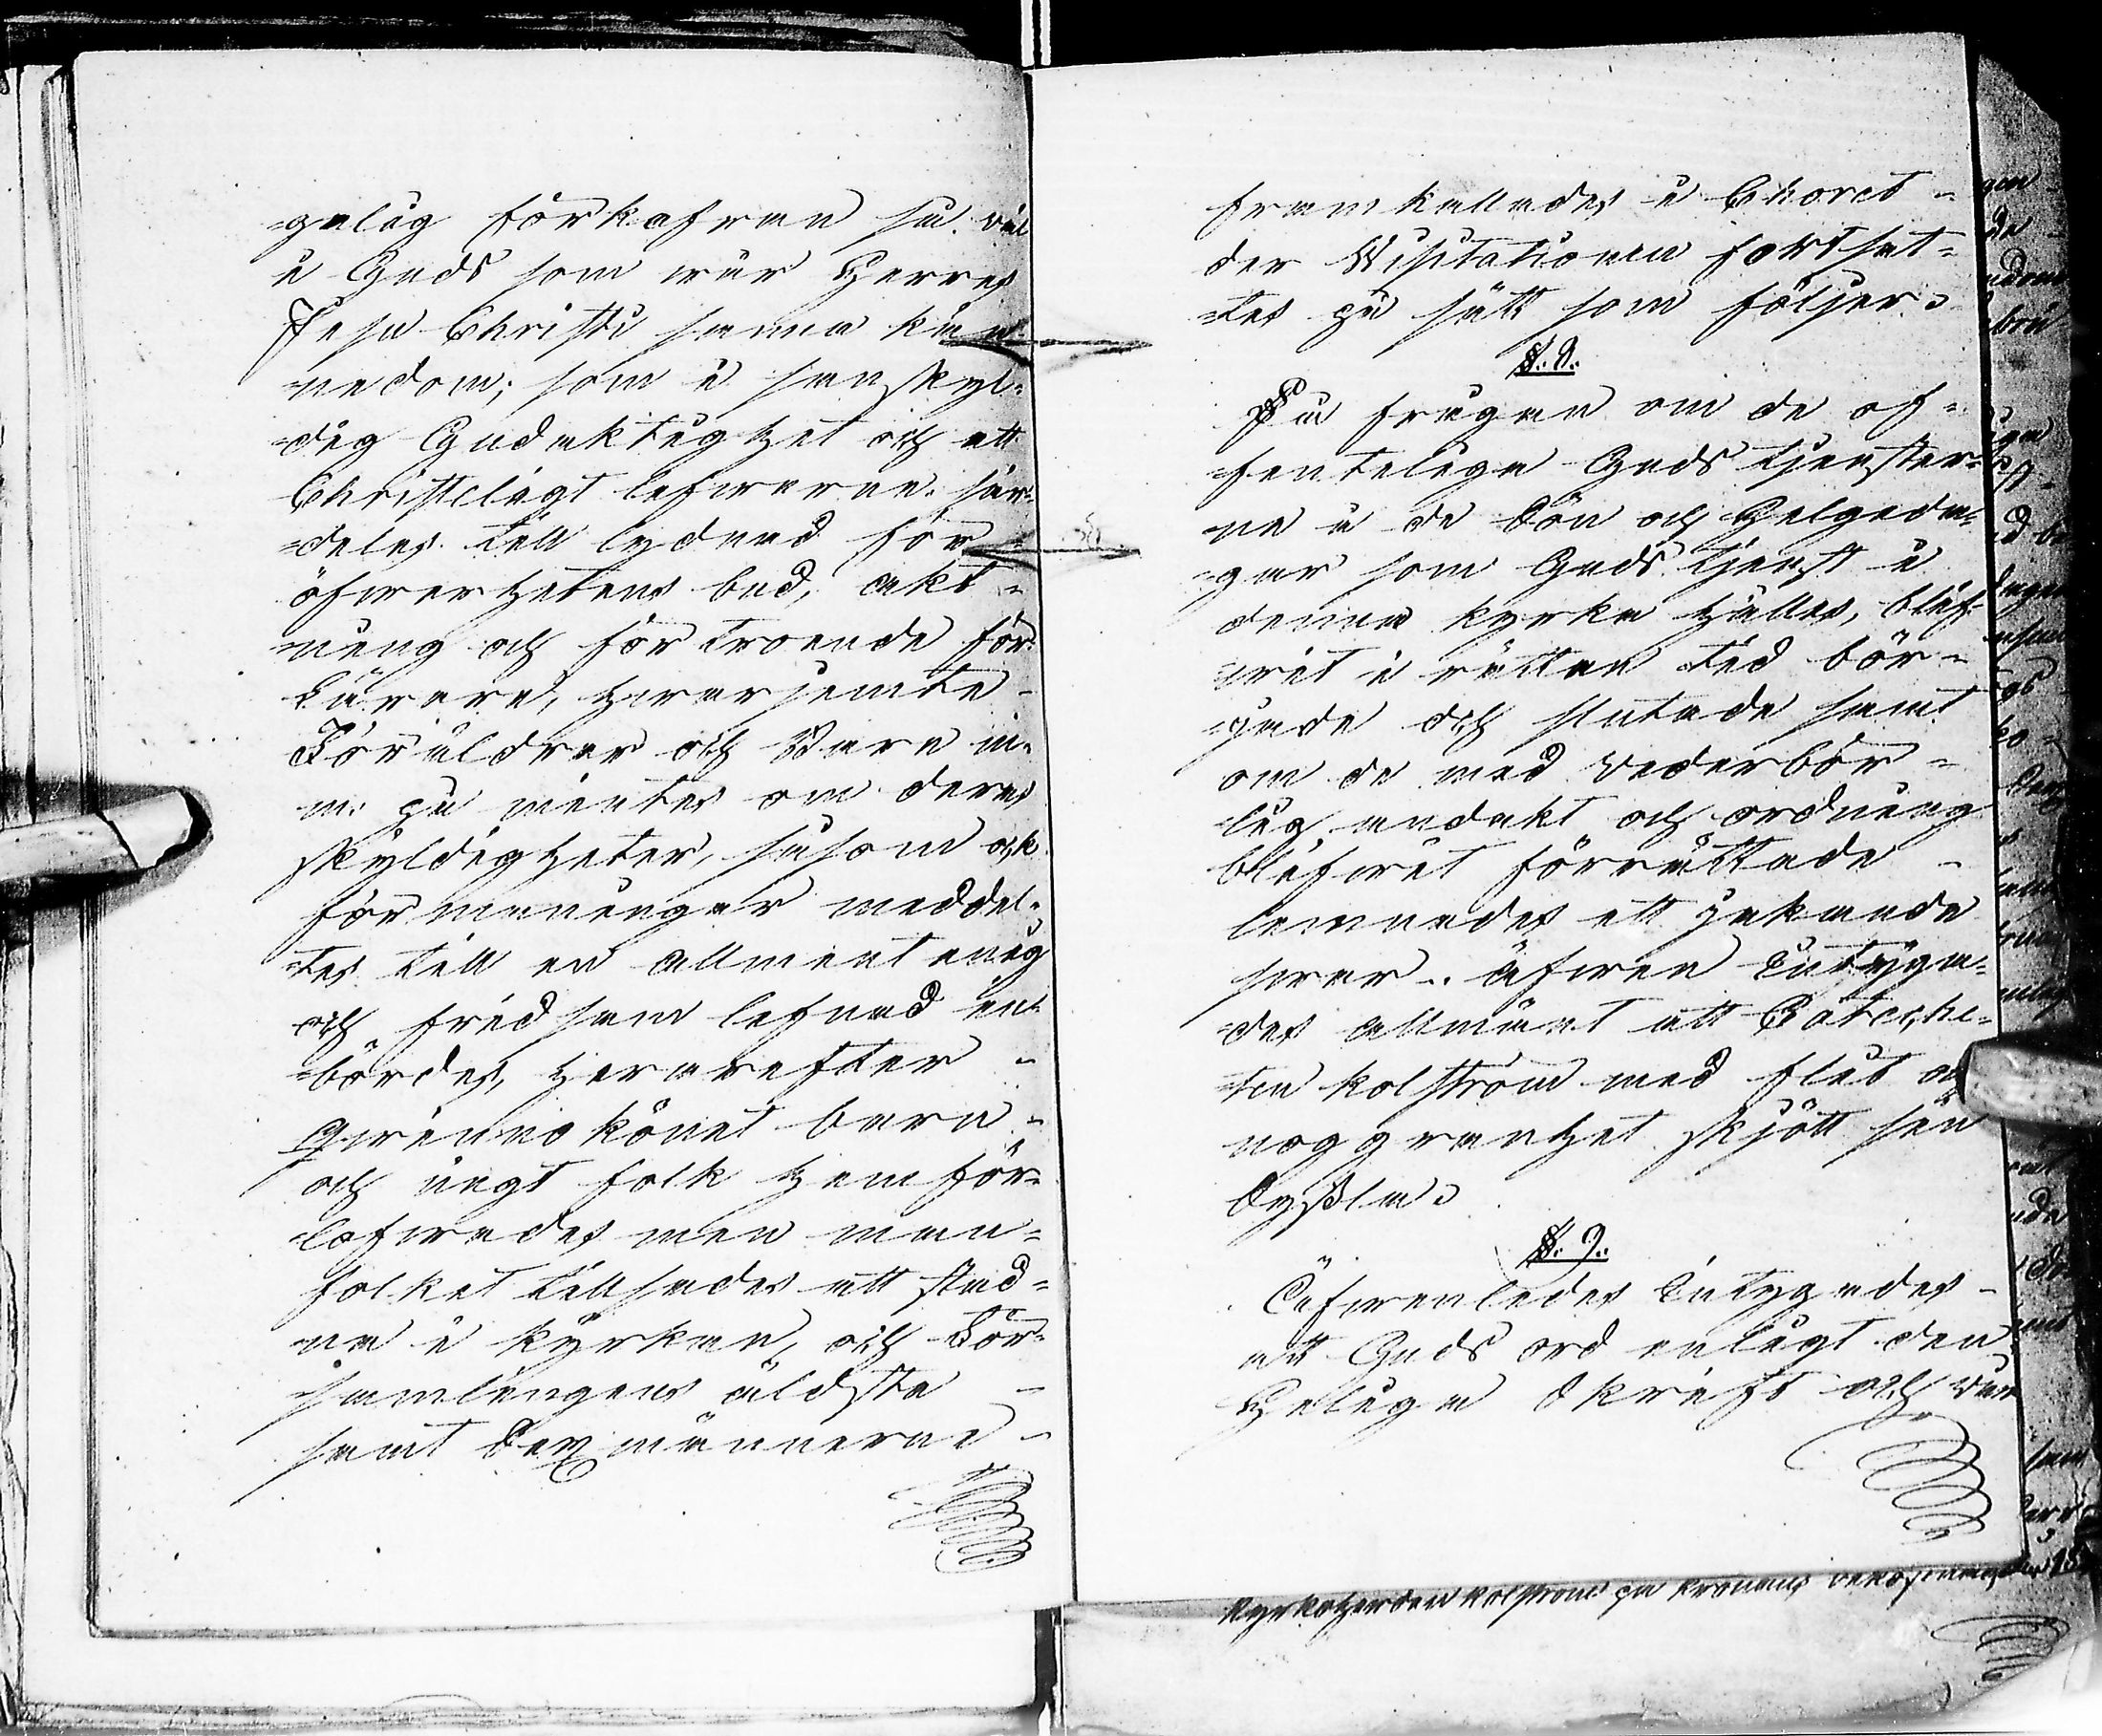 =gelig förkofran så väl
i Guds som wår Herres
Jesu Christi sanna kän
=nedom; som i sanskyl=
=dig Gudaktighet och ett
Christeligt lefwerne. sär=
=deles till lydnad för
öfwerhetens bud, akt=
=ning och förtroende för
Lärare, hwarjemte -
Föräldrar och Barn m.
m. på mintes om deras
skyldigheter, såsom ock
förmaningar meddel=
=tes till en allment enig
och fridsam lefnad in=
=bördes, hwarefter -
Qwinnokönet barn -
och ungt folk hemför=
=lofwades men man=
folket tillsades att stad=
=na i kyrkan, och För=
samlingens äldste -
samt Sexmännerne -
framkallades i Choret -
der Visitationen fortsat=
=tes på sätt som följer.
§. 8.
På frågan om de of=
=fentelige Gudstjenster=
=ne å de Sön och Helgeda=
=gar som Gudstjenst i
denna kyrka hålles, blif=
=wit i rättan tid bör=
=jade och slutade samt
om de med vederbör=
=lig andakt och ordning
blifwit förrättade -
lemnades ett jakande
swar. äfwen intyga=
=des allmänt att Cateche=
=ten Kolström med flit och
noggranhet skjött sin
Syßla.
§. 9.
Äfwenledes intygades -
att Guds ord enligt den
Heliga Skrift och wår
Kyrkoherden Kolström på Kronans